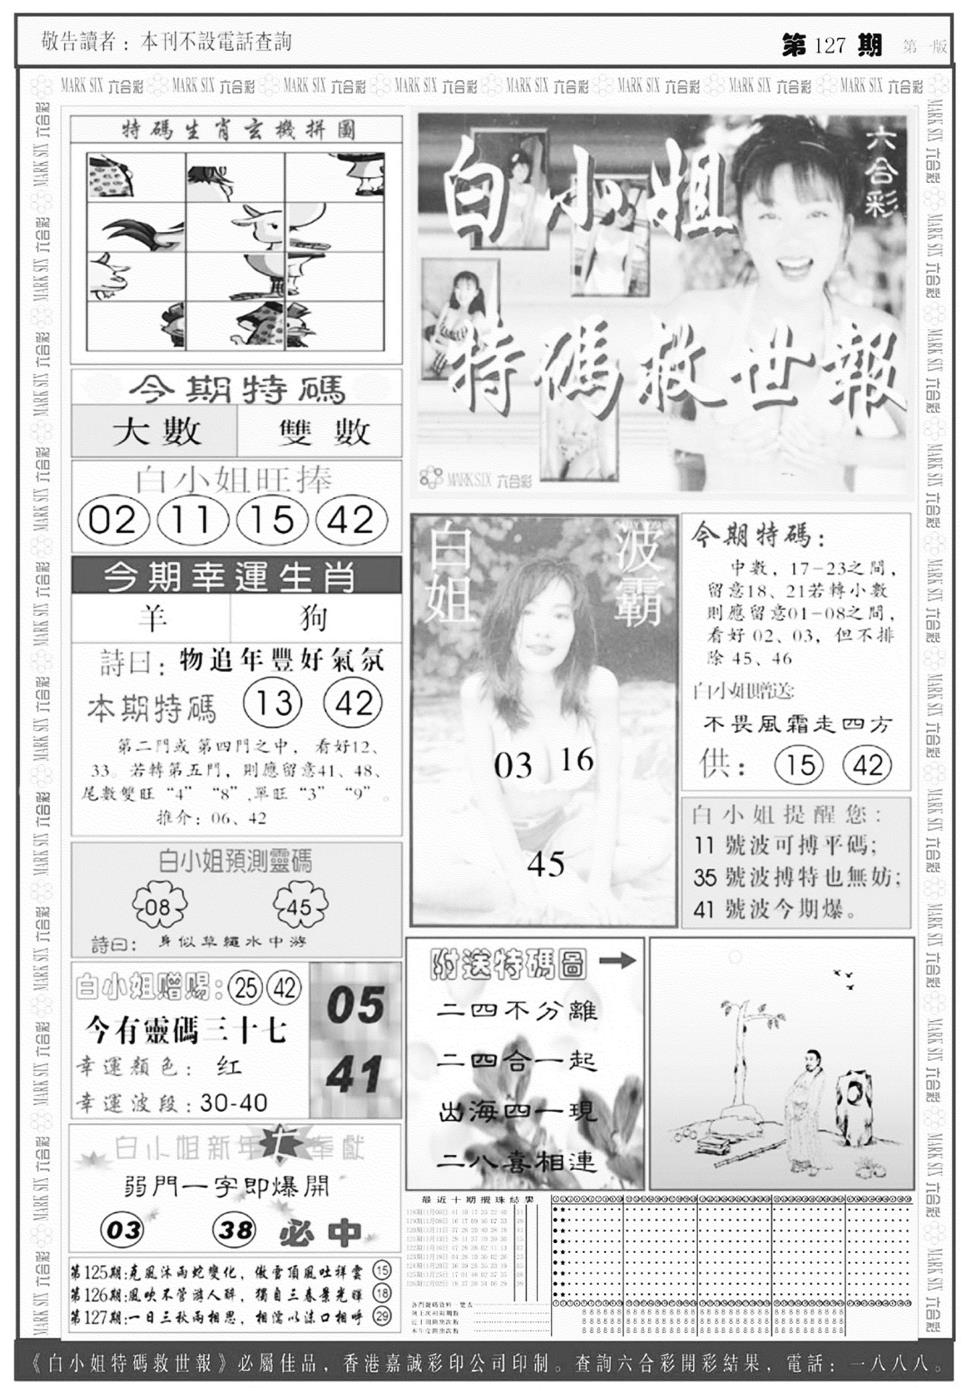 敬告讀者：本刊不設電話查詢
第 127 期 第一版
MARK SIX 六合彩 MARK SIX 六合彩 MARK SIX 六合彩 MARK SIX 六合彩 MARK SIX 六合彩 MARK SIX 六合彩 MARK SIX 六合彩 MARK SIX 六合彩
特碼生肖玄機拼圖
六合彩
白小姐
特碼救世報
MARK SIX 六合彩
今期特碼
大數 雙數
白小姐旺捧
02 11 15 42
今期幸運生肖
羊 狗
詩曰：物追年豐好氣氛
本期特碼 13 42
第二門或第四門之中，看好12、
33。若轉第五門，則應留意41、48、
尾數雙旺“4”“8”,單旺“3”“9”。
推介：06、42
白小姐預測靈碼
08 45
詩曰：身似草繩水中游
白小姐赠赐：25 42
今有靈碼三十七
幸運顏色：红
幸運波段：30-40
05
41
白小姐新年 奉獻
弱門一字即爆開
03 38 必中
第125期:克風沐雨蛇變化，傲雪頂風吐祥雲 15
第126期:風吹不管游人醉，獨自三春景光暉 18
第127期:一日三秋兩相思，相濡以沫口相呼 29
白姐 波霸
03 16
45
今期特碼：
中數，17-23之間，
留意18、21若轉小數
則應留意01-08之間，
看好 02、03，但不排
除 45、46
白小姐贈送:
不畏風霜走四方
供：15 42
白小姐提醒您：
11 號波可搏平碼；
35 號波搏特也無妨；
41 號波今期爆。
附送特碼圖
二四不分離
二四合一起
出海四一現
二八喜相連
最近十期攪珠結果
《白小姐特碼救世報》必屬佳品，香港嘉誠彩印公司印制。查詢六合彩開彩結果，電話：一八八八。